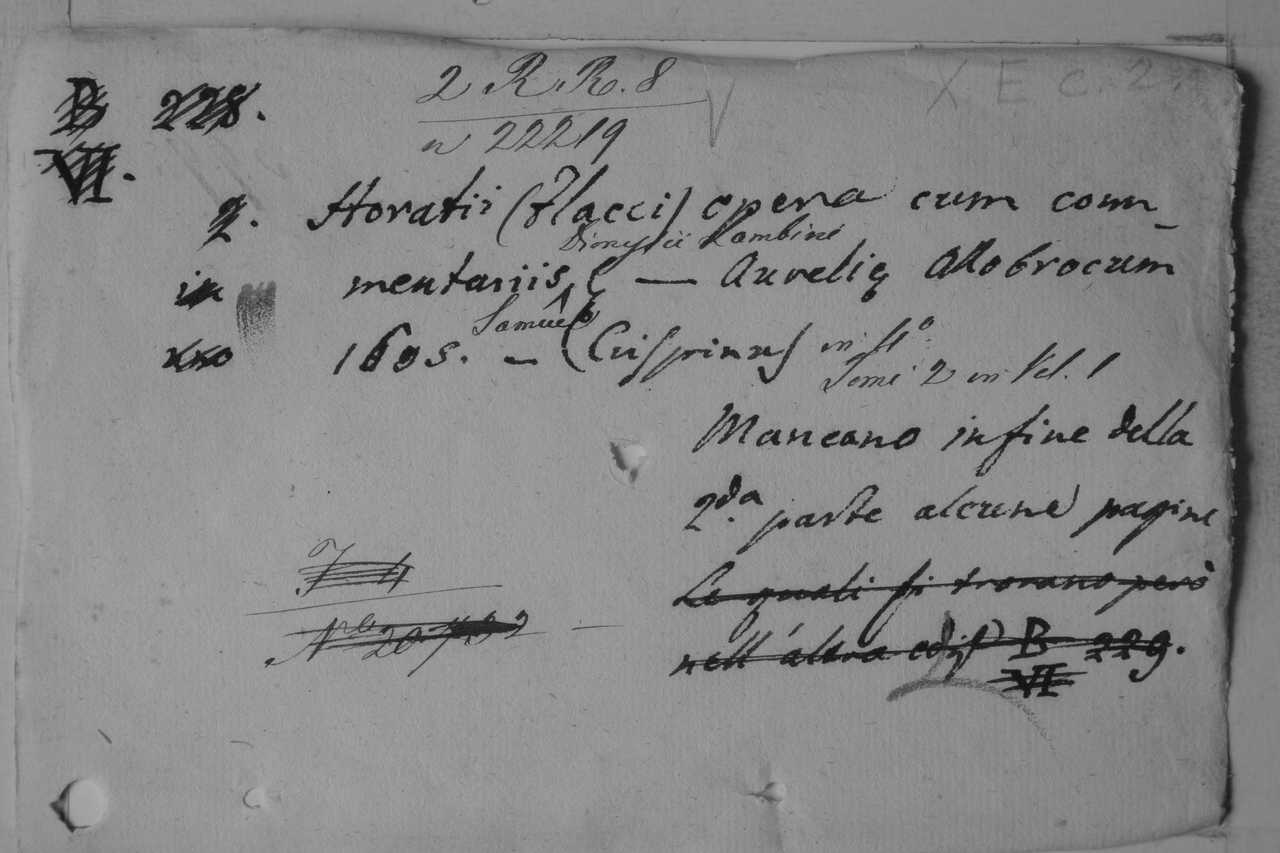 B 228.
VII.
2 R. R. 8
n 22219
X E c. 2.
2. Horatii (Flacci) opera cum com_
Dionysii Lambini
in mentariis ( — Aurelię Allobrocum
Samuel
1605. – (Crispinus) in 4°.
Tomi 2 in Vol. 1
Mancano in fine della
2.da parte alcune pagine
Le quali si trovano però
nell'altra ediz. B 229.
VI
J 4
N.o 20732